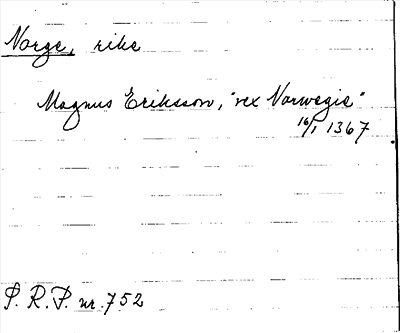 Norge, rike
Magnus Eriksson, "rex Norwegie"
16/1 1367
S. R. P. nr. 752